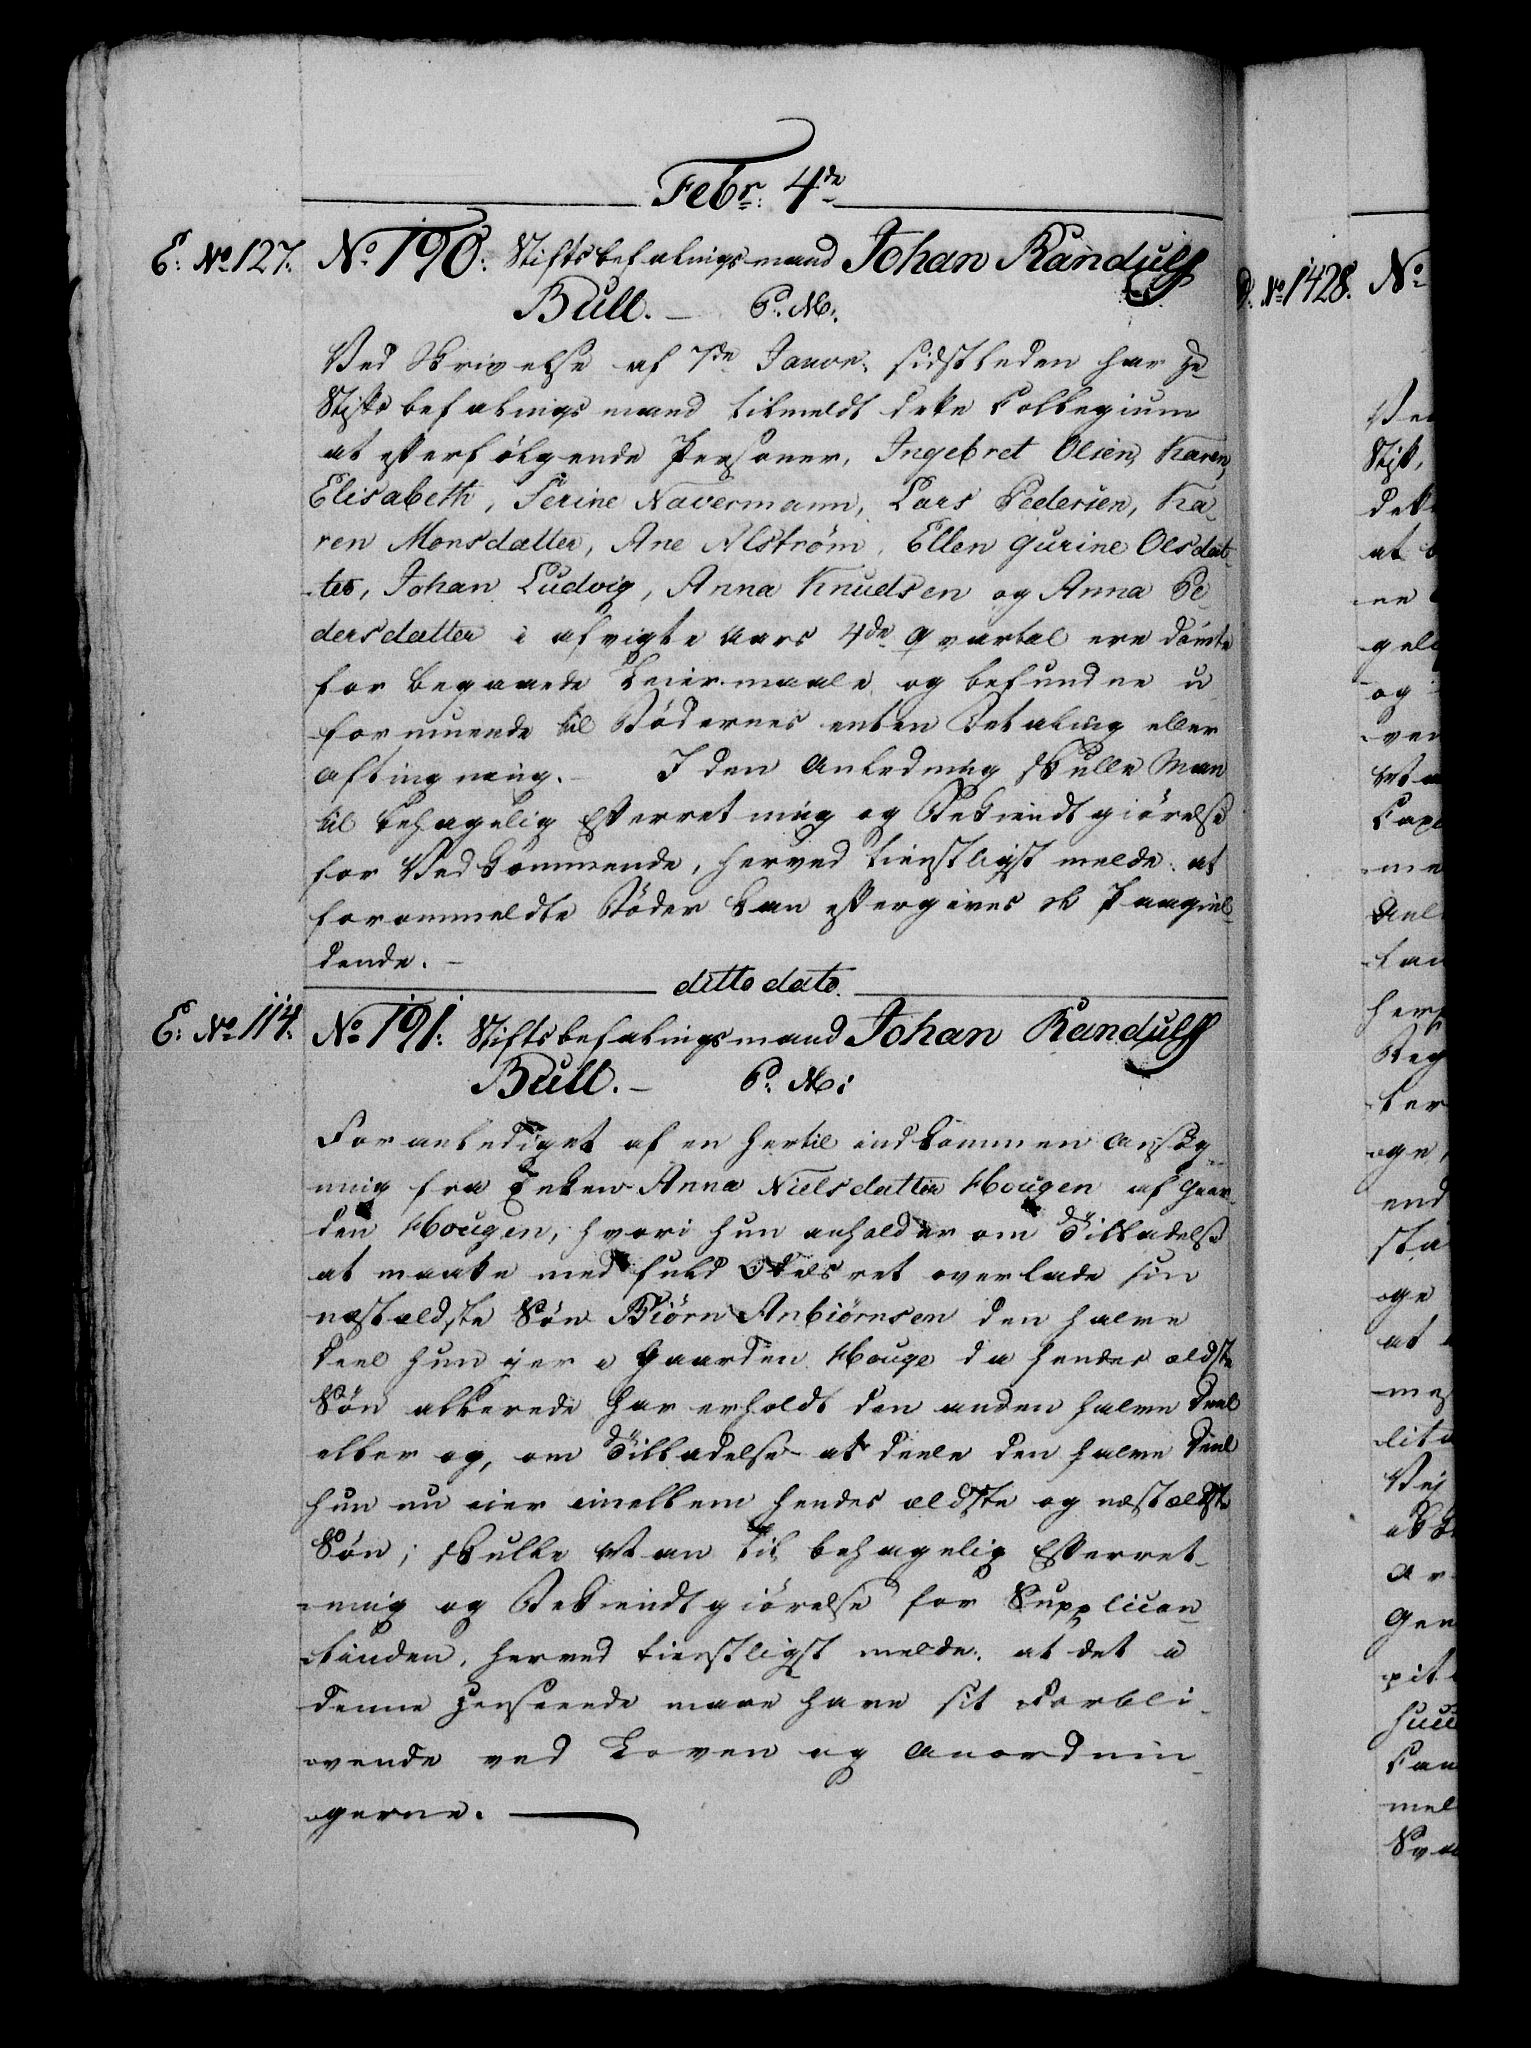 Febr: 4de
E: No 127. No 190. Stiftsbefalingsmand Johan Randulf
Bull. — P. M:
Ved Skrivelse af 7de Janvr: sidstleden har Hr
Stiftsbefalingsmand tilmeldt dette Collegium
at efterfølgende Personer, Ingebret Olsen, Karen
Elisabeth, Serine Navermann, Lars Pedersen, Ka-
ren Monsdatter, Ane Alström, Ellen Gurine Olsdat-
ter, Johan Ludvig, Anna Knudsen og Anna Pe-
dersdatter i afvigte Aars 4de Qvartal ere dömte
for begaaede Leiermaale og befundne u
formuende til Bödernes enten Betaling eller
Aftingning. — I den Anledning skulle Man
til behagelig Efterretning og Bekiendtgiörelse
for Vedkommende, herved tienstligst melde: at
forommeldte Böder kan eftergives de Paagiel-
dende. —
ditto dato.
E: No 114. No 191. Stiftsbefalingsmand Johan Randulf
Bull. — P. M:
Foranlediget af en hertil indkommen Ansög-
ning fra Enken Anna Nielsdatter Hougen af Gaar-
den Hougen, hvori hun anholder om Tilladelse
at maatte med fuld Odelsret overlade sin
næstældste Sön Biörn Anbiörnsen den halve
Deel hun eier i Gaarden Houge da hendes ældste
Sön allerede har erholdt den anden halve Deel
eller og, om Tilladelse at deele den halve Deel
hun nu eier imellem hendes ældste og næstældste
Sön; skulle Man til behagelig Efterret-
ning og Bekiendtgiörelse for Supplican-
tinden, herved tienstligst melde: at det i
denne Henseende maae have sit Forbli-
vende ved Loven og Anordnin-
gerne. —
No 1428. No